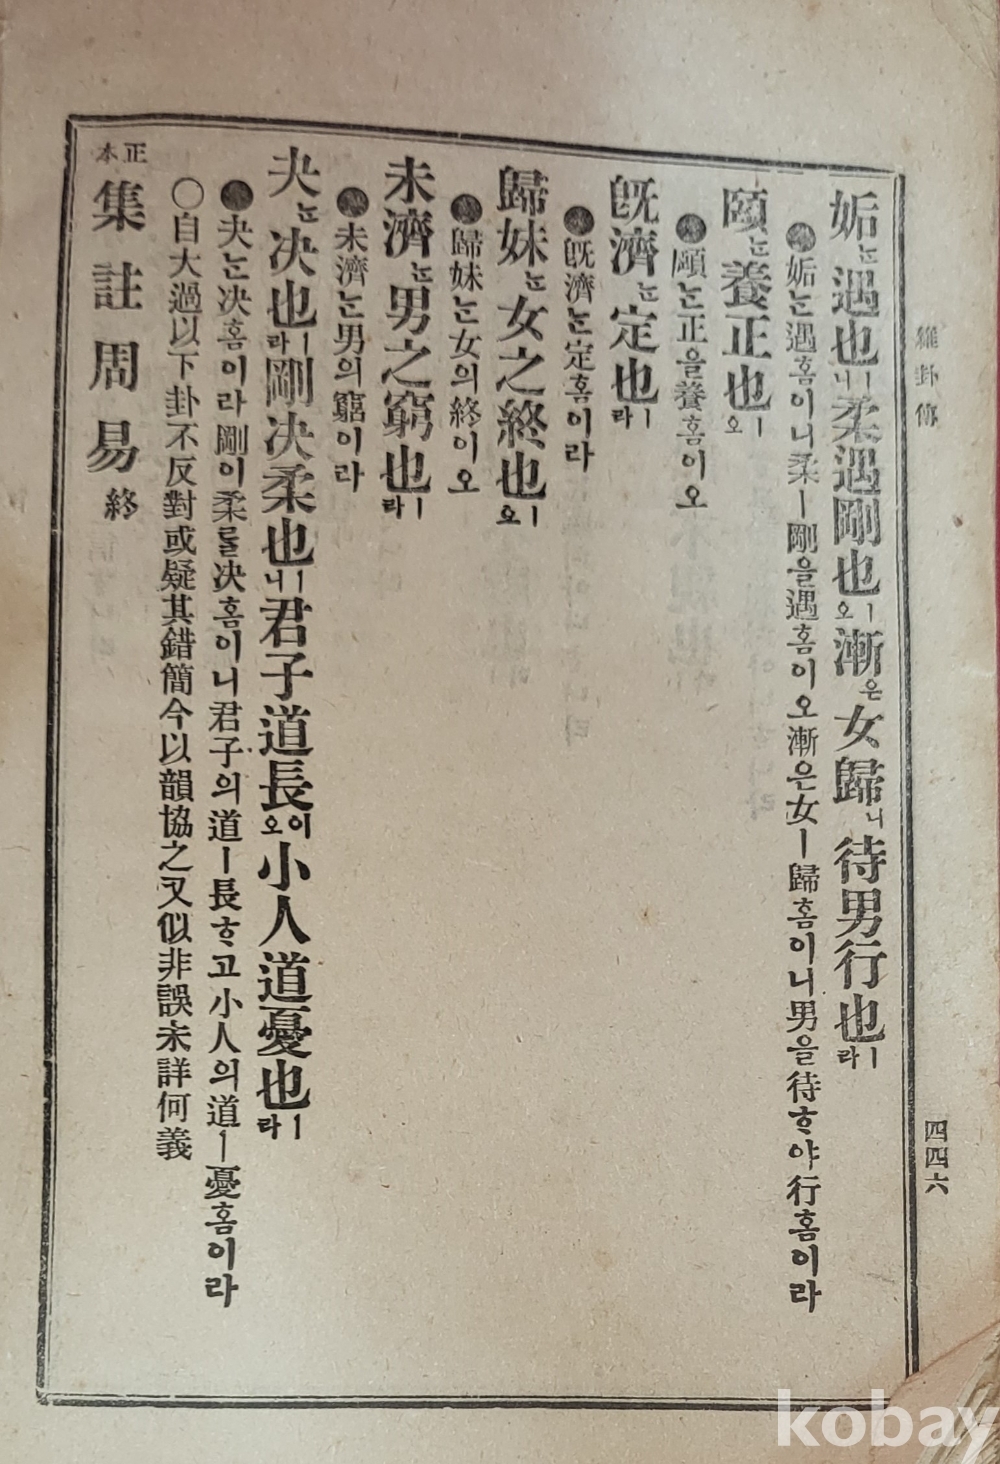 雜卦傳
四四六
姤ᄂᆞᆫ遇也ㅣ니柔遇剛也ㅣ오漸은女歸니待男行也ㅣ라
姤ᄂᆞᆫ遇홈이니柔ㅣ剛을遇홈이오漸은女ㅣ歸홈이니男을待ᄒᆞ야行홈이라
頤ᄂᆞᆫ養正也ㅣ오
頤ᄂᆞᆫ正을養홈이오
旣濟ᄂᆞᆫ定也ㅣ라
旣濟ᄂᆞᆫ定홈이라
歸妹ᄂᆞᆫ女之終也ㅣ오
歸妹ᄂᆞᆫ女의終이오
未濟ᄂᆞᆫ男之窮也ㅣ라
未濟ᄂᆞᆫ男의窮이라
夬ᄂᆞᆫ决也ㅣ라剛决柔也ㅣ니君子道長이오小人道憂也ㅣ라
夬ᄂᆞᆫ决홈이라剛이柔ᄅᆞᆯ决홈이니君子의道ㅣ長ᄒᆞ고小人의道ㅣ憂홈이라
○自大過以下卦不反對或疑其錯簡今以韻協之又似非誤未詳何義
正本集註周易終
kobay